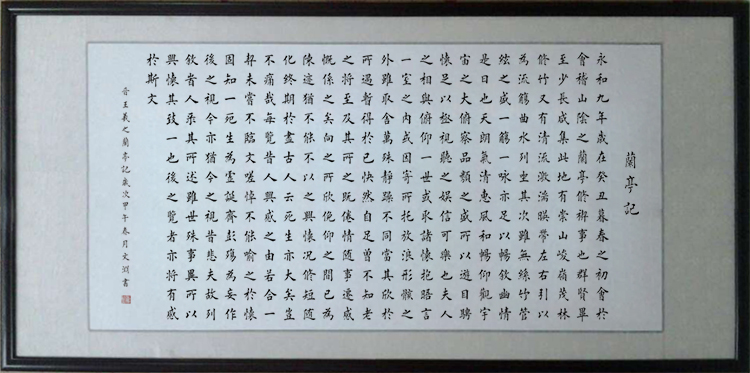 蘭亭記
永和九年歲在癸丑暮春之初會於
會稽山陰之蘭亭脩禊事也群賢畢
至少長咸集此地有崇山峻嶺茂林
脩竹又有清流激湍暎帶左右引以
為流觴曲水列坐其次雖無絲竹管
絃之盛一觴一咏亦足以暢敘幽情
是日也天朗氣清惠風和暢仰觀宇
宙之大俯察品類之盛所以遊目騁
懷足以極視聽之娛信可樂也夫人
之相與俯仰一世或取諸懷抱晤言
一室之內或因寄所托放浪形骸之
外雖取舍萬殊靜躁不同當其欣於
所遇暫得於己快然自足曾不知老
之將至及其所之既倦情隨事遷感
慨係之矣向之所欣俛仰之間已為
陳迹猶不能不以之興懷況脩短隨
化終期於盡古人云死生亦大矣豈
不痛哉每覽昔人興感之由若合一
契未嘗不臨文嗟悼不能喻之於懷
固知一死生為虛誕齊彭殤為妄作
後之視今亦猶今之視昔悲夫故列
敘人其所述雖世殊事異所以
興懷其致一也後之覽者亦將有感
於斯文
晉王羲之蘭亭記歲次甲午春月文淵書